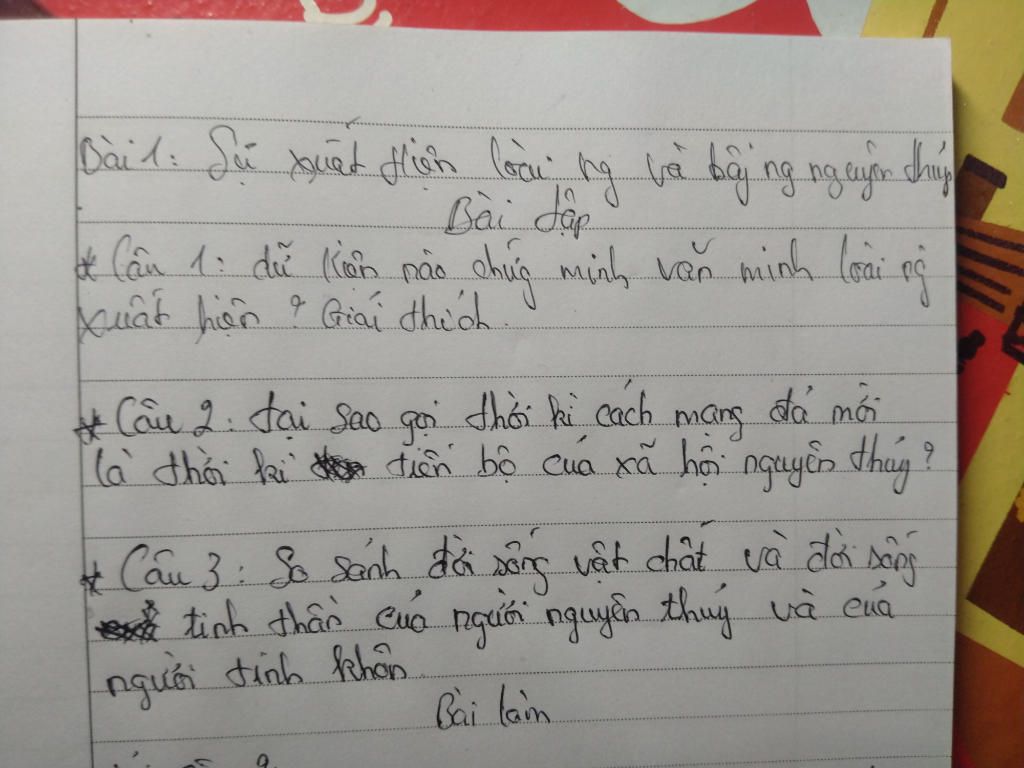 Bài 1: Sự xuất hiện loài ng và bầy ng nguyên thủy
Bài tập
* Câu 1: dữ kiện nào chứg minh văn minh loài ng
xuất hiện? Giải thích.
* Câu 2: tại sao gọi thời kì cách mạng đá mới
là thời kì tiến bộ của xã hội nguyên thủy?
* Câu 3: So sánh đời sống vật chất và đời sống
tinh thần của người nguyên thủy và của
người tinh khôn.
Bài làm